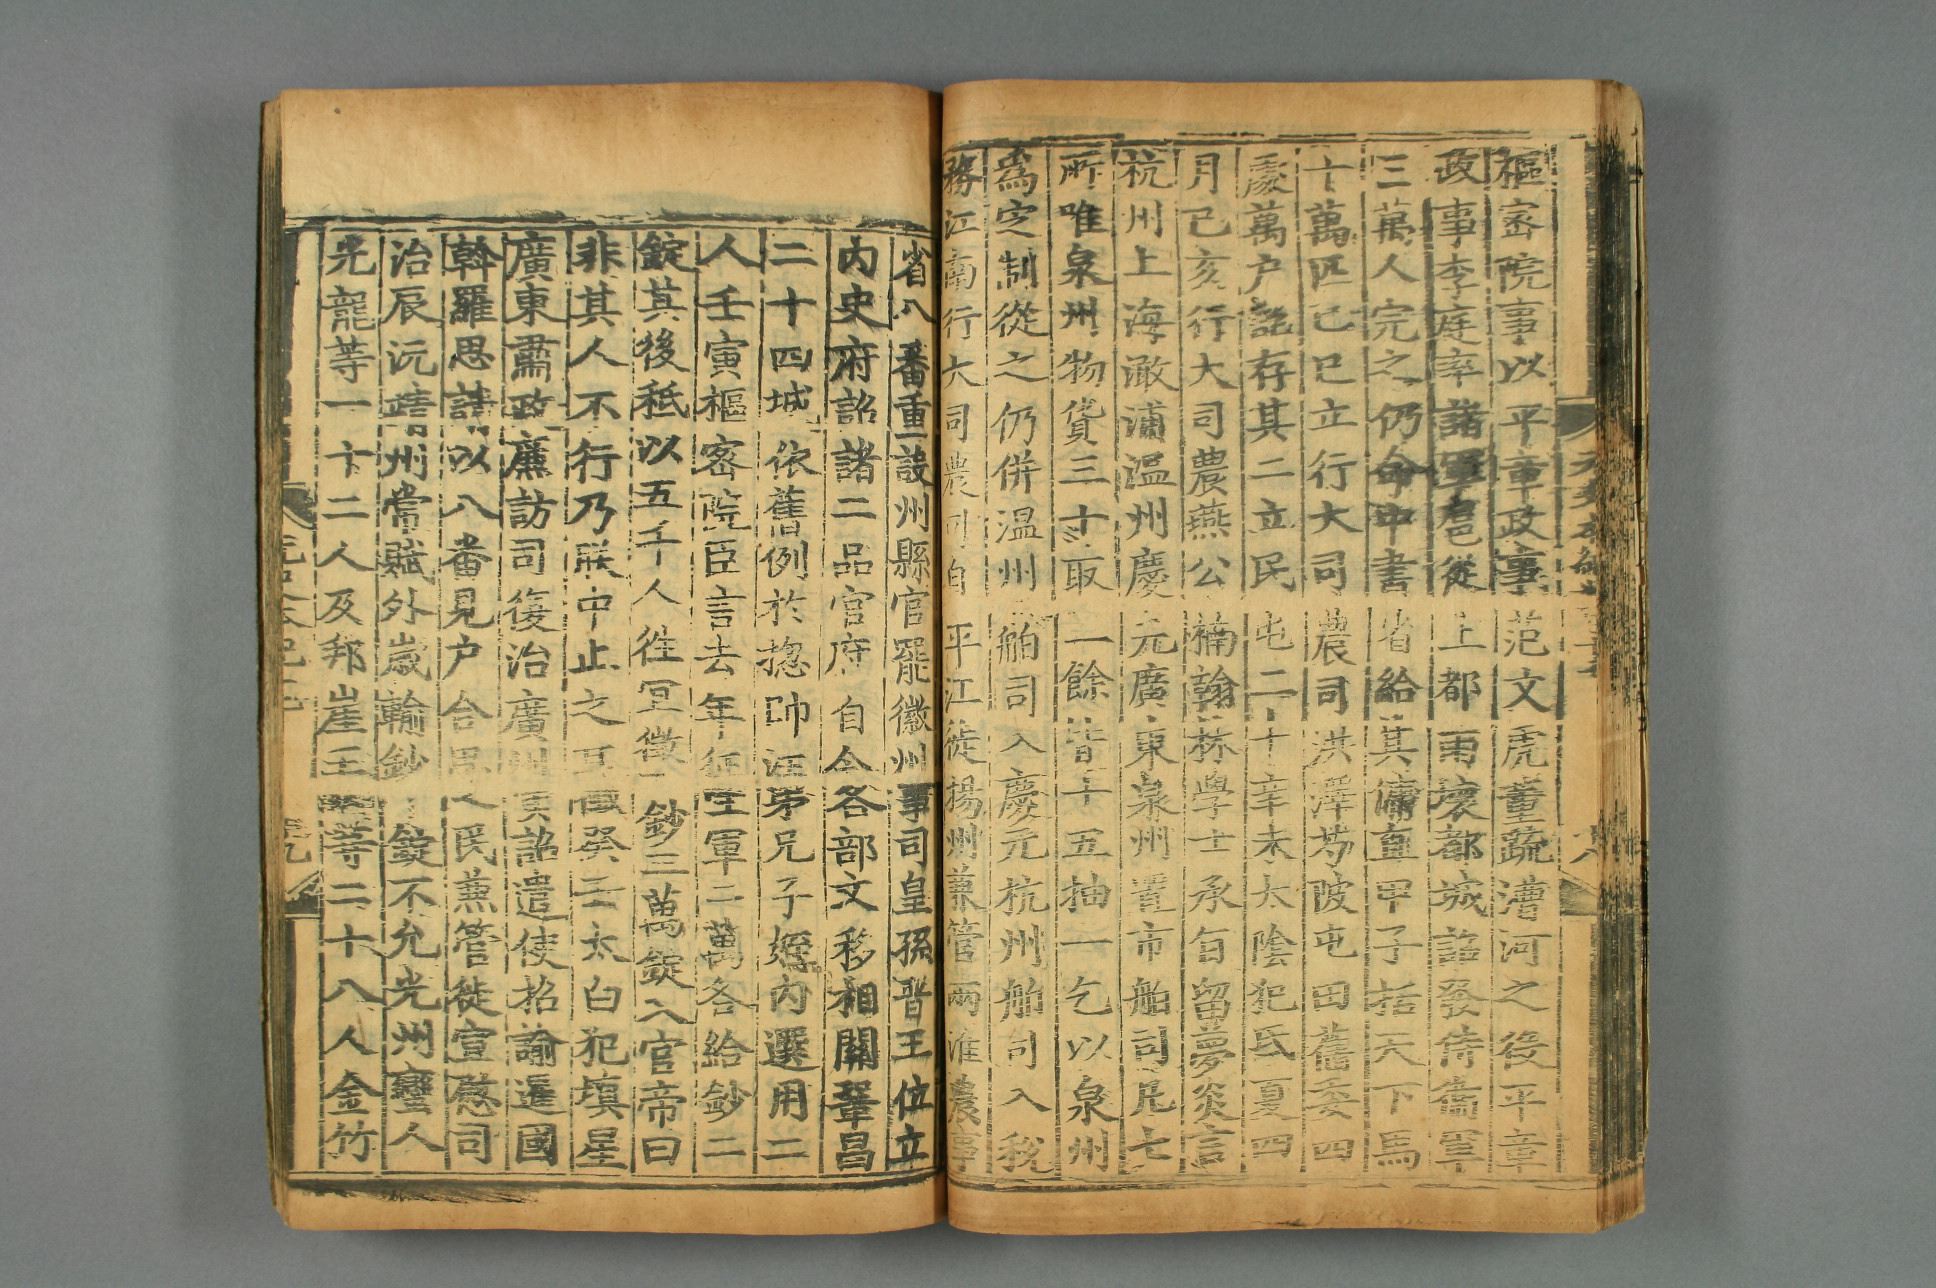 樞密院事以平章政事范文虎董疏漕河之役平章
政事李庭率諸軍扈從上都雨壞都城詔發侍衛軍
三萬人完之仍命中書省給其傭直甲子括天下馬
十萬匹己巳立行大司農司洪澤芍陂屯田舊委四
處萬戶詔存其二立民屯二十辛未太陰犯氐夏四
月己亥行大司農燕公楠翰林學士承旨留夢炎言
杭州上海澉浦溫州慶元廣東泉州置市舶司凡七
所唯泉州物貨三十取一餘皆十五抽一乞以泉州
為定制從之仍併溫州舶司入慶元杭州舶司入稅
務江南行大司農司自平江徙揚州兼管兩淮農事
省八番重設州縣官罷徽州 事司皇孫晉王位立
內史府詔諸二品官府自今各部文移相關鞏昌
二十四城依舊例於揔帥汪 弟兄子姪內選用二
人壬寅樞密院臣言去年征 軍二萬各給鈔二
錠其後秪以五千人往 徵 鈔三萬錠入官帝曰
非其人不行乃朕中止之耳 癸 太白犯填星
廣東肅政廉訪司復治廣州 詔遣使招諭暹國
斡羅思請以八番見戶合思 民兼管徙宣慰司
治辰沅靖州常賦外歲輸鈔 錠不允光州蠻人
光龍等一十二人及邦崖王 等二十八人金竹
元史本紀
八
元史本紀
九